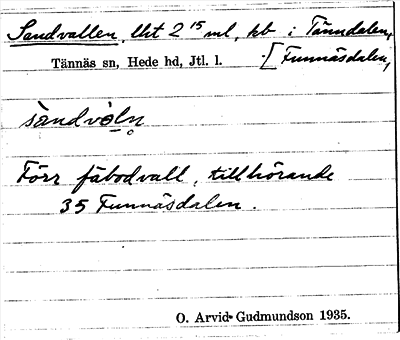 Sandvallen, Ubt 2¹⁵ ml, kb i Tänndalen,
Tännäs sn, Hede hd, Jtl. l. [Funnäsdalen,
sandvòln
Förr fäbodvall, tillhörande
35 Funnäsdalen.
O. Arvid Gudmundson 1935.